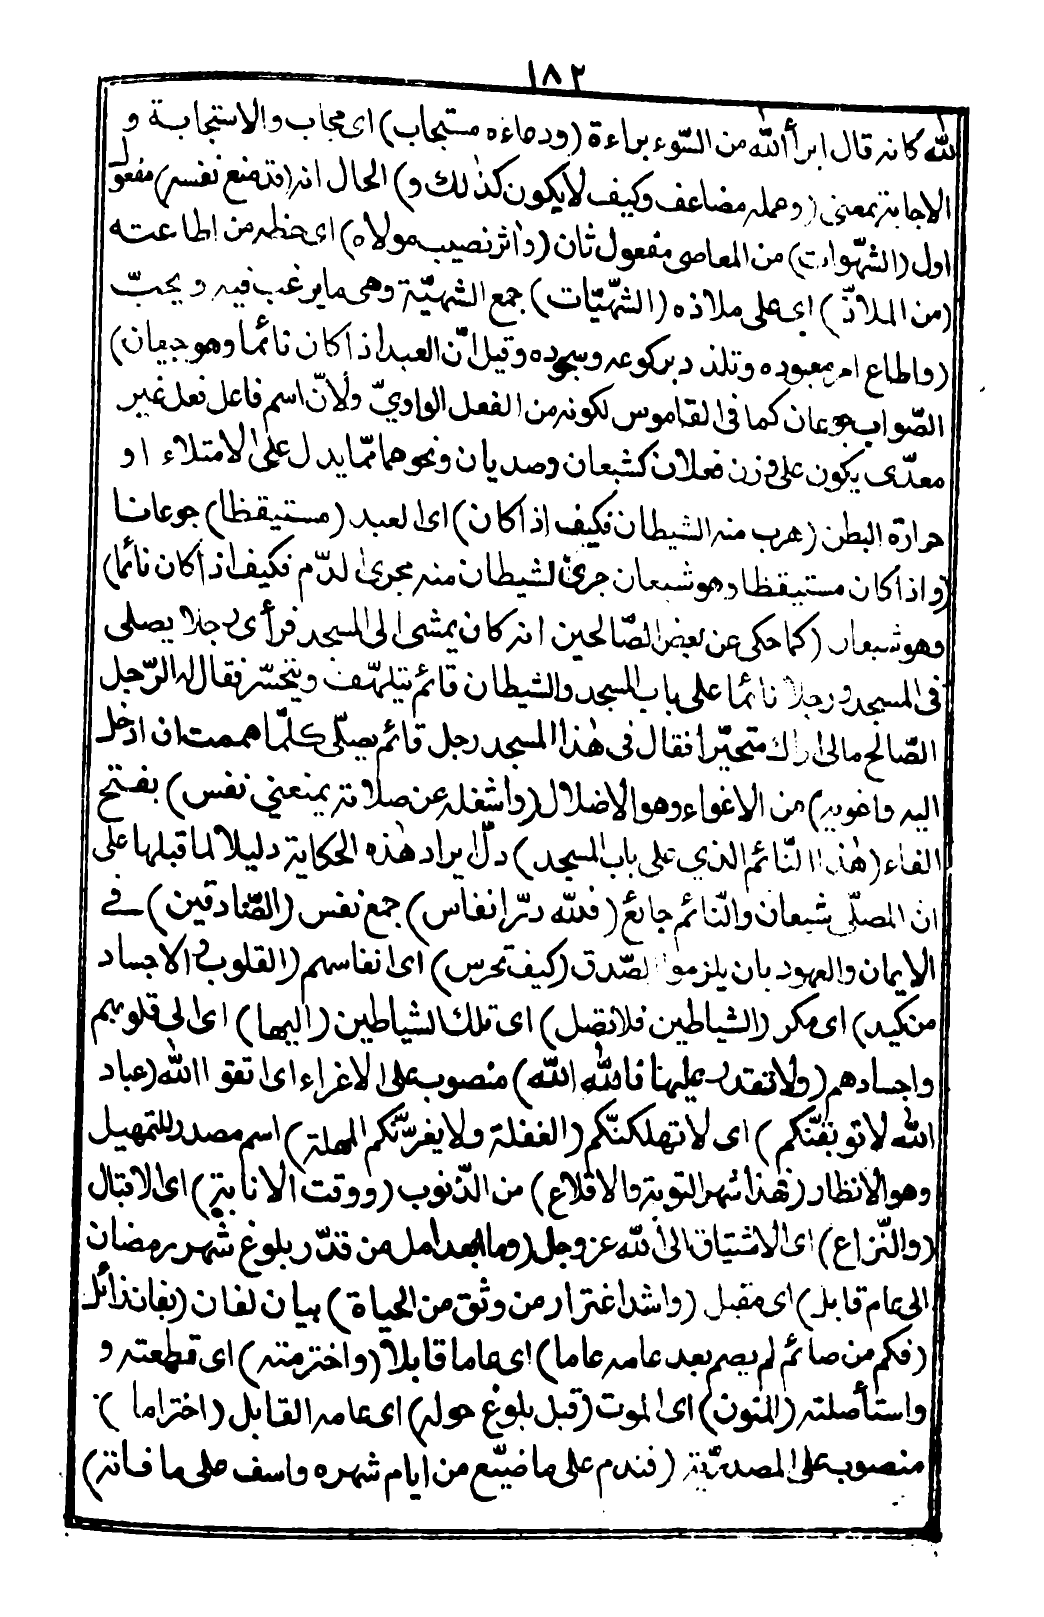 ١٨٢
لله كانه قال ابرأ الله من السّوء براءة (ودعاؤه مستجاب) اى مجاب والاستجابة و
الاجابة بمعنى (وعمله مضاعف وكيف لا يكون كذلك و) الحال انه (قد ضع نفسه) مفعول
اول (الشهوات) من المعاصى مفعول ثان (واثر نصيب مولاه) اى حظه من اطاعته
(من الملاذّ) اى على ملاذه (الشّهيّات) جمع الشهيّة وهى ما يرغب فيه ويحبّ
(واطاع امر معبوده وتلذد بركوعه وسجوده وقيل انّ العبد اذا كان نائما وهو جيعان)
الصّواب جوعان كما فى القاموس لكونه من الفعل الواويّ ولانّ اسم فاعل فعل غير
معدّى يكون على وزن فعلان كشبعان وصديان ونحوهما ممّا يدل على الامتلاء او
حرارة البطن (هرب منه الشيطان فكيف اذا كان) اى العبد (مستيقظا) جوعانا
(واذا كان مستيقظا وهو شبعان جرى الشيطان منه مجرى الدّم فكيف اذا كان نائما)
وهو شبعان (كما حكى عن بعض الصّالحين انه كان يمشى الى المسجد فرأى رجلا يصلى
فى المسجد ورجلا نائما على باب المسجد والشيطان قائم يتلهّف ويتحسّر فقال له الرّجل
الصّالح مالى اراك متحيّرا فقال فى هذا المسجد رجل قائم يصلّى كلّما هممت ان ادخل
اليه واغويه) من الاغواء وهو الاضلال (واشغله عن صلاته يمنعني نفس) بفتح
الفاء (هذا النّائم الذي على باب المسجد) دلّ ايراد هذه الحكاية دليلا لما قبلها على
ان المصلّى شبعان والنّائم جائع (فلله درّ انفاس) جمع نفس (الصّادقين) فى
الايمان والعهود بان يلزموا الصّدق (كيف تحرس) اى انفاسهم (القلوب و الاجساد
من كيد) اى مكر (الشياطين فلا تصل) اى تلك الشياطين (اليها) اى الى قلوبهم
واجسادهم (ولا تقدر عليها فالله الله) منصوب على الاغراء اى اتقوا الله (عباد
الله لا توبقنّكم) اى لا تهلكنّكم (الغفلة ولا يغرنّكم المهلة) اسم مصدر للتمهيل
وهو الانظار (فهذا شهر التوبة والاقلاع) من الذّنوب (ووقت الانابة) اى الاقبال
(والنّزاع) اى الاشتياق الى الله عز وجل (وما ابعد امل من قدّر بلوغ شهر رمضان
الى عام قابل) اى مقبل (واشد اغترار من وثق من الحياة) بيان لفان (بفان زائل
(فكم من صائم لم يصم بعد عامه عاما) اى عاما قابلا (واخترمته) اى قطعته و
واستأصلته (المنون) اى الموت (قبل بلوغ حوله) اى عامه القابل (اختراما)
منصوب على المصدريّة (فندم على ما ضيّع من ايام شهره واسف على ما فاته)